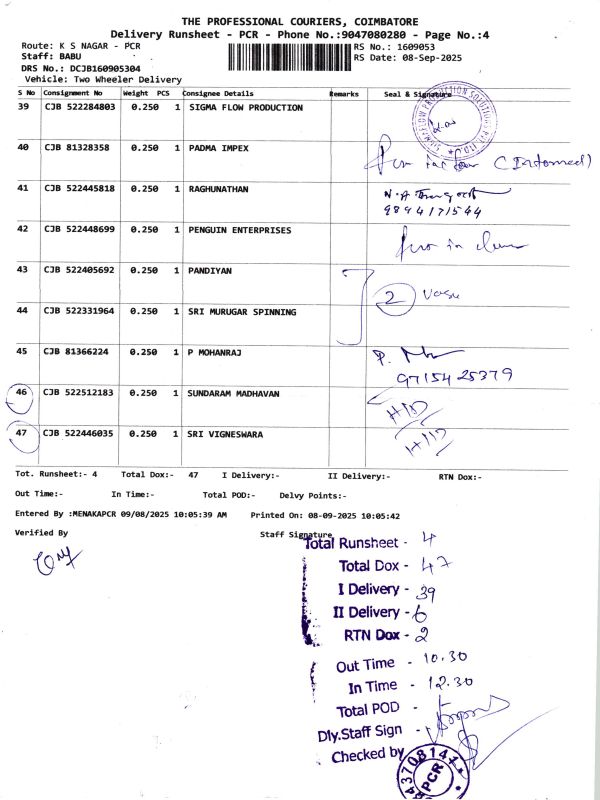 THE PROFESSIONAL COURIERS, COIMBATORE
Delivery Runsheet - PCR - Phone No.:9047080280 - Page No.:4
Route: K S NAGAR - PCR
RS No.: 1609053
Staff: BABU
RS Date: 08-Sep-2025
DRS No.: DCJB160905304
Vehicle: Two Wheeler Delivery
S No Consignment No Weight PCS Consignee Details Remarks Seal & Signature
39 CJB 522284803 0.250 1 SIGMA FLOW PRODUCTION
40 CJB 81328358 0.250 1 PADMA IMPEX
41 CJB 522445818 0.250 1 RAGHUNATHAN
9894171544
42 CJB 522448699 0.250 1 PENGUIN ENTERPRISES
43 CJB 522405692 0.250 1 PANDIYAN
2
44 CJB 522331964 0.250 1 SRI MURUGAR SPINNING
45 CJB 81366224 0.250 1 P MOHANRAJ
9715425379
46 CJB 522512183 0.250 1 SUNDARAM MADHAVAN
47 CJB 522446035 0.250 1 SRI VIGNESWARA
Tot. Runsheet:- 4 Total Dox:- 47 I Delivery:- II Delivery:- RTN Dox:-
Out Time:- In Time:- Total POD:- Delvy Points:-
Entered By :MENAKAPCR 09/08/2025 10:05:39 AM Printed On: 08-09-2025 10:05:42
Verified By Staff Signature
Total Runsheet - 4
Total Dox - 47
I Delivery - 39
II Delivery - 6
RTN Dox - 2
Out Time - 10.30
In Time - 12.30
Total POD -
Dly.Staff Sign -
Checked by
PCR